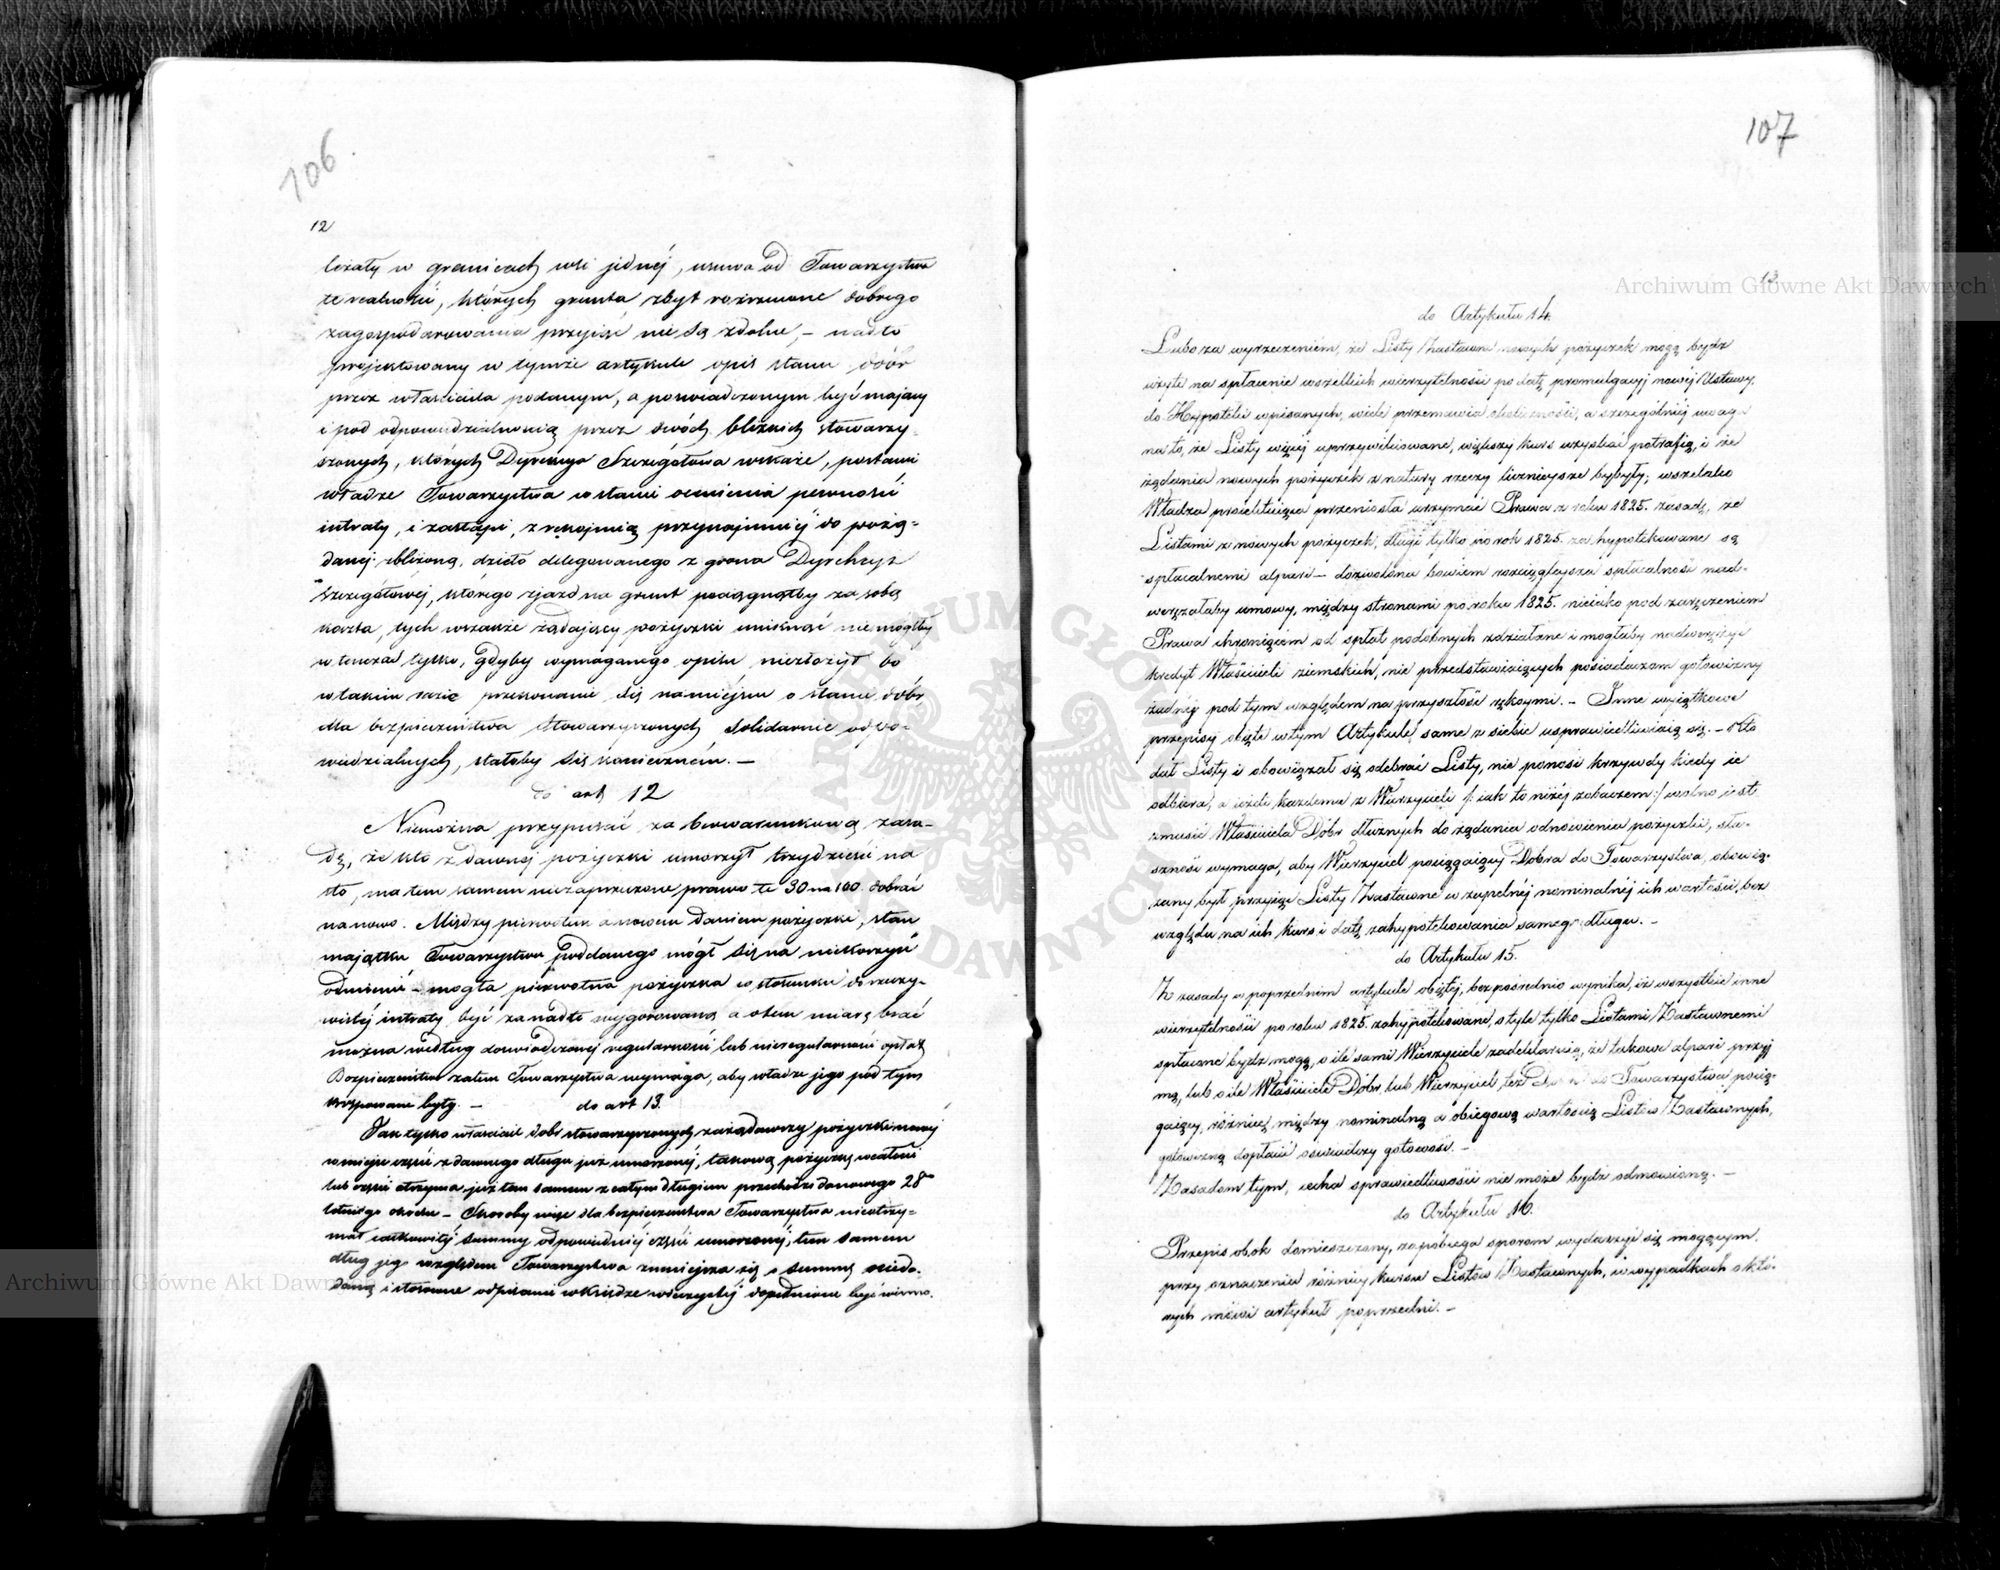 106
12
leżały w granicach wsi jednéj, usuwa od Towarzystwa
te realności, których grunta zbyt rozrzucone dobrego
zagospodarowania przyjść nie są zdolne, – nadto
projektowany w tymże artykule opis stanu dóbr
przez właściciela podanym, a poświadczonym być mający
i pod odpowiedzialnością przez dwóch bliźnich stowarzy-
szonych, których Dyrekcya Szczegółowa wskaże, postawi
władze Towarzystwa w stanie ocenienia pewności
intraty, i zastąpi, z rękojmią przynajmniéj do pożą-
danéj zbliżoną, dzieło delegowanego z grona Dyrekcyi
Szczegółowéj, którego zjazd na grunt pociągnąłby za sobą
koszta, tych wszakże żądający pożyczki uniknąć nie mógłby
wtenczas tylko, gdyby wymaganego opisu niezłożył bo
w takim razie przekonanie się na miejscu o stanie dóbr,
dla bezpieczeństwa Stowarzyszonych solidarnie odpo-
wiedzialnych, stałoby się konieczném. –
do art 12
Niemożna przypuścić za bezwarunkową zasa-
dę, że kto z dawnéj pożyczki umorzył trzydzieści na
sto, ma tem samem niezaprzeczone prawo te 30 na 100 dobrać
na nowo. Między pierwotnem a nowem daniem pożyczki, stan
majątku Towarzystwu poddanego mógł się na niekorzyść
odmienić – mogła pierwotna pożyczka w stosunku do rzeczy-
wistéj intraty być zanadto wygórowaną a o tem miarę brać
można według doświadczonéj regularności lub nieregularności opłat
Bezpieczeństwo zatem Towarzystwa wymaga, aby władze jego pod tym
względem były. –
do art 13.
Jak tylko właściciel dóbr stowarzyszonych zażądawszy pożyczki nowéj
w miejsce części z dawnego długu już umorzonéj, takową pożyczkę w całości
lub części otrzyma już tem samem z całym długiem przechodzi do nowego 28mio
letniego okresu – Skoroby więc dla bezpieczeństwa Towarzystwa nieotrzy-
mał całkowitéj summy odpowiedniéj części umorzonéj, tem samem
dług jego względem Towarzystwa zmniejsza się o summę niedo-
daną i stosowne odpisanie w Księdze wieczystéj dopełnione być winno.
107
13
do Artykułu 14.
Lubo za wyrzeczeniem, że Listy Zastawne nowych pożyczek mogą bydź
użyte na spłacenie wszelkich wierzytelności po datę promulgacyj nowéj Ustawy,
do Hypoteki wpisanych, wiele przemawia okoliczności, a szczególniéj uwaga
na to, że Listy więcéj uprzywilejowane, większy kurs uzyskać potrafią, i że
żądania nowych pożyczek z natury rzeczy liczniejsze byłyby; wszelako
Władza projektująca przeniosła utrzymać Prawa z roku 1825. zasadę, że
Listami z nowych pożyczek, długi tylko po rok 1825. zahypotekowane są
spłacalnemi alpari – dozwolona bowiem rozciąglejsza spłacalność nad-
werężałaby umowy, między stronami po roku 1825. niejako pod zaręczeniem
Prawa chroniącem od spłat podobnych zdziałane i mogłaby nadwerężyć
kredyt Właścicieli ziemskich, nie przedstawiających posiadaczom gotowizny
żadnéj pod tym względem na przyszłość rękojmi. – Inne wyjątkowe
przepisy objęte w tym Artykule, same z siebie usprawiedliwiaią się. – Kto
dał Listy i obowiązał się odebrać Listy, nie ponosi krzywdy kiedy je
odbiera, a jeżeli każdemu z Wierzycieli /: jak to niżéj zobaczem :/ wolno jest
zmusić Właściciela Dóbr dłużnych do żądania odnowienia pożyczki, słu-
szność wymaga, aby Wierzyciel pociągaiący Dobra do Towarzystwa, obowią-
zany był przyjąć Listy Zastawne w zupełnéj nominalnéj ich wartości, bez
względu na ich kurs i datę zahypotekowania samego długu. –
do Artykułu 15.
Z zasady w poprzednim artykule objętéj, bezpośrednio wynika, iż wszystkie inne
wierzytelności po roku 1825. zahypotekowane, o tyle tylko Listami Zastawnemi
spłacone bydź mogą, o ile sami Wierzyciele zadeklarują, że takowe alpari przyj
mą, lub o ile Właściciele Dóbr, lub Wierzyciel też Dobra do Towarzystwa pocią-
gający, różnicę między nominalną a obiegową wartością Listów Zastawnych,
gotowizną dopłacić oświadczy gotowość. –
Zasadom tym, cecha sprawiedliwości nie może bydź odmowioną. –
do Artykułu 16.
Przepis obok domieszczony, zapobiega sporom wydarzyć się mogącym,
przy oznaczeniu różnicy kursu Listów Zastawnych, w wypadkach o któ-
rych mówi artykuł poprzedni. –
Archiwum Główne Akt Dawnych
Archiwum Główne Akt Dawnych
ARCHIWUM GŁÓWNE AKT DAWNYCH